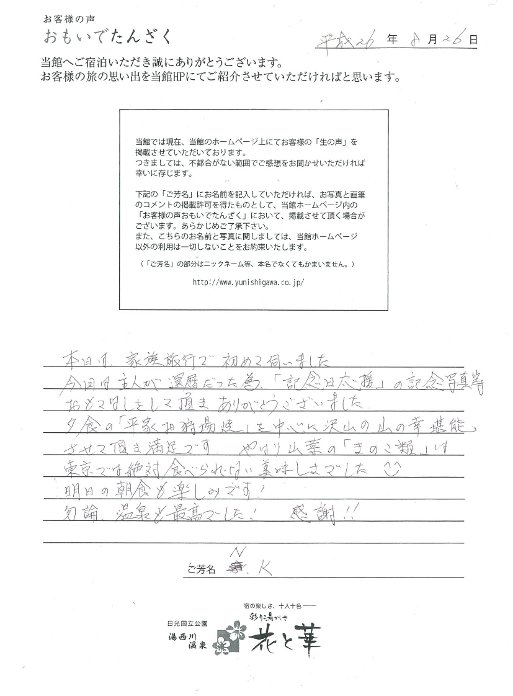 お客様の声
おもいでたんざく
平成26年8月26日
当館へご宿泊いただき誠にありがとうございます。
お客様の旅の思い出を当館HPにてご紹介させていただければと思います。
当館では現在、当館のホームページ上にてお客様の「生の声」を
掲載させていただいております。
つきましては、不都合がない範囲でご感想をお聞かせいただければ
幸いに存じます。
下記の「ご芳名」にお名前を記入していただければ、お写真と直筆
のコメントの掲載許可を得たものとして、当館ホームページ内の
「お客様の声おもいでたんざく」において、掲載させて頂く場合が
ございます。あらかじめご了承下さい。
また、こちらのお名前と写真に関しましては、当館ホームページ
以外の利用は一切しないことをお約束いたします。
（「ご芳名」の部分はニックネーム等、本名でなくてもかまいません。）
http://www.yunishigawa.co.jp/
本日は 家族旅行で 初めて伺いました
今回は主人が 還暦だった為、「記念日応援」の記念写真等
おもてなしをして頂き ありがとうございました
夕食の「平家お狩場焼」を中心に沢山の山の幸 堪能
させて頂き満足です やはり山菜の「きのこ類」は
東京では絶対 食べられない 美味しさでした
明日の朝食も楽しみです!
勿論、温泉も最高でした! 感謝!!
ご芳名 N.K
宿の楽しさ、十人十色
日光国立公園
湯西川温泉
彩り湯かしき
花と華